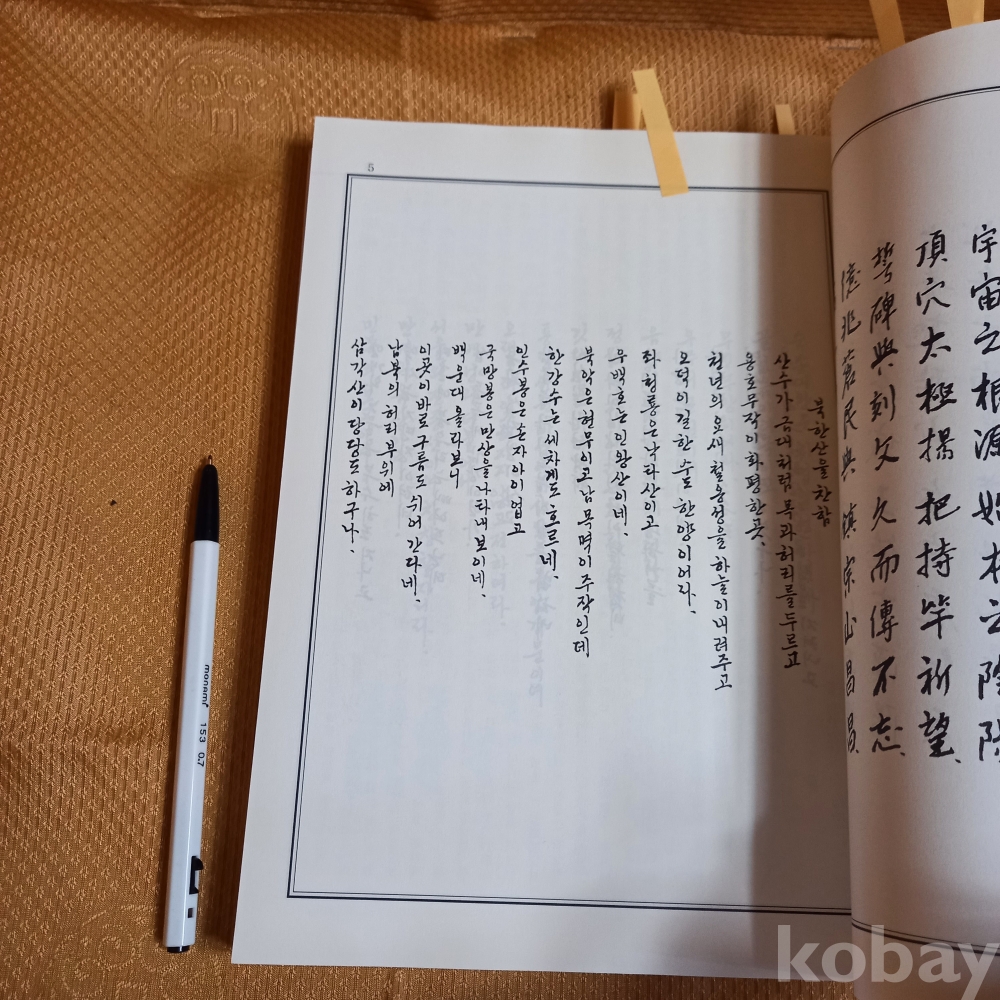 宇宙之根源始於云陰陽
頂穴太極揚把持牢祈望
誓碑與刻文久而傳不忘
憶兆蒼民與鎭宗山昌昌
5
북한산을 찬함
산수가 금대처럼 목과 허리를 두르고
용호무작이 화평한 곳.
천년의 요새 철옹성을 하늘이 내려주고
오덕이 길한 수도 한양이어라.
좌청룡은 낙타산이고
우백호는 인왕산이네.
북악은 현무이고 남목멱이 주작인데
한강수는 세차게도 흐르네.
인수봉은 손자아이 업고
국망봉은 만상을 나타내 보이네.
백운대 올라보니
이곳이 바로 구름도 쉬어 간다네.
남북의 허리부위에
삼각산이 당당도 하구나.
monami 153 0.7
kobay